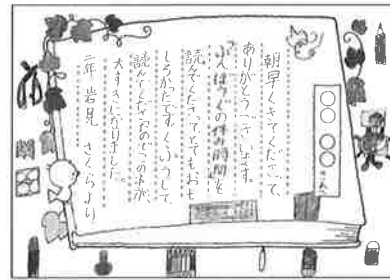 ○○○○さんへ
朝早くきてくださって、
ありがとうございます。
「ぶんぼうぐの休み時間」を
読んでくださってとてもおも
しろかったです。くふうして
読んでくださったのでこの本が、
大すきになりました。
二年 岩見 さくらより